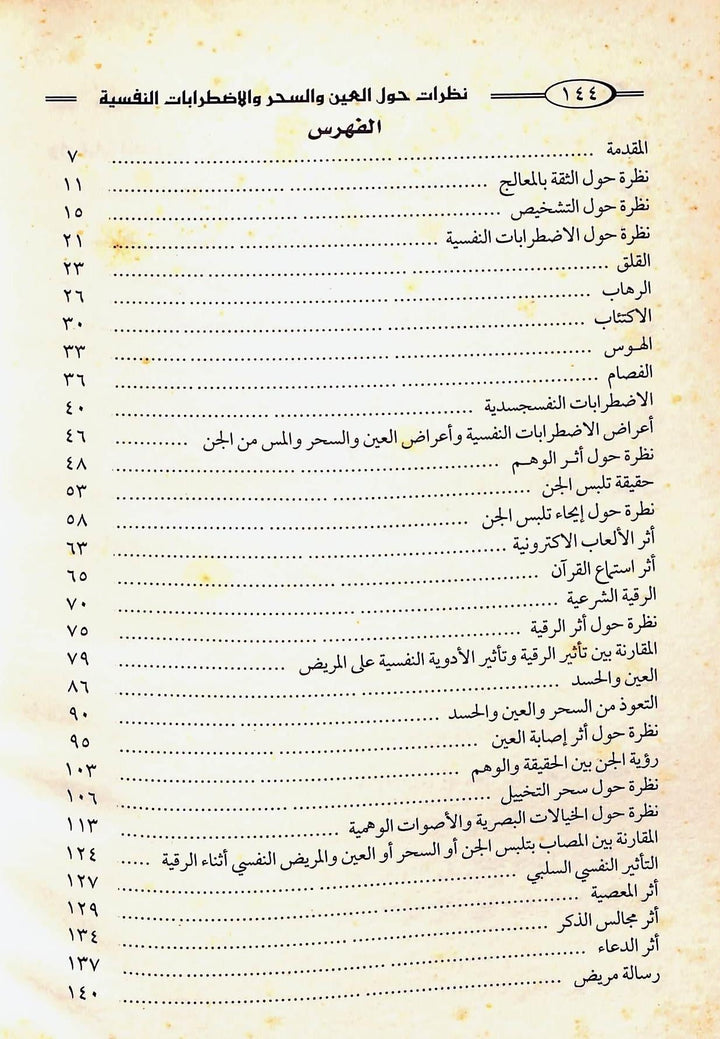 ١٤٤ نظرات حول العين والسحر والاضطرابات النفسية
الفهرس
المقدمة ................ ٧
نظرة حول الثقة بالمعالج ................ ١١
نظرة حول التشخيص ................ ١٥
نظرة حول الاضطرابات النفسية ................ ٢١
القلق ................ ٢٣
الرهاب ................ ٢٦
الاكتئاب ................ ٣٠
الهـوس ................ ٣٣
الفصام ................ ٣٦
الاضطرابات النفسجسدية ................ ٤٠
أعراض الاضطرابات النفسية وأعراض العين والسحر والمس من الجن ................ ٤٦
نظرة حول أثـر الوهـم ................ ٤٨
حقيقة تلبس الجن ................ ٥٣
نطرة حول إيحاء تلبس الجن ................ ٥٨
أثر الألعاب الاكترونية ................ ٦٣
أثر استماع القرآن ................ ٦٥
الرقية الشرعية ................ ٧٠
نظرة حول أثر الرقية ................ ٧٥
المقارنة بين تأثير الرقية وتأثير الأدوية النفسية على المريض ................ ٧٩
العين والحسد ................ ٨٦
التعوذ من السحر والعين والحسد ................ ٩٠
نظرة حول أثر إصابة العين ................ ٩٥
رؤية الجن بين الحقيقة والوهم ................ ١٠٣
نظرة حول سحر التخييل ................ ١٠٦
نظرة حول الخيالات البصرية والأصوات الوهمية ................ ١١٣
المقارنة بين المصاب بتلبس الجن أو السحر أو العين والمريض النفسي أثناء الرقية ..... ١٢٤
التأثير النفسي السلبي ................ ١٢٧
أثر المعصية ................ ١٢٩
أثر مجالس الذكر ................ ١٣٤
أثر الدعاء ................ ١٣٧
رسالة مريض ................ ١٤٠